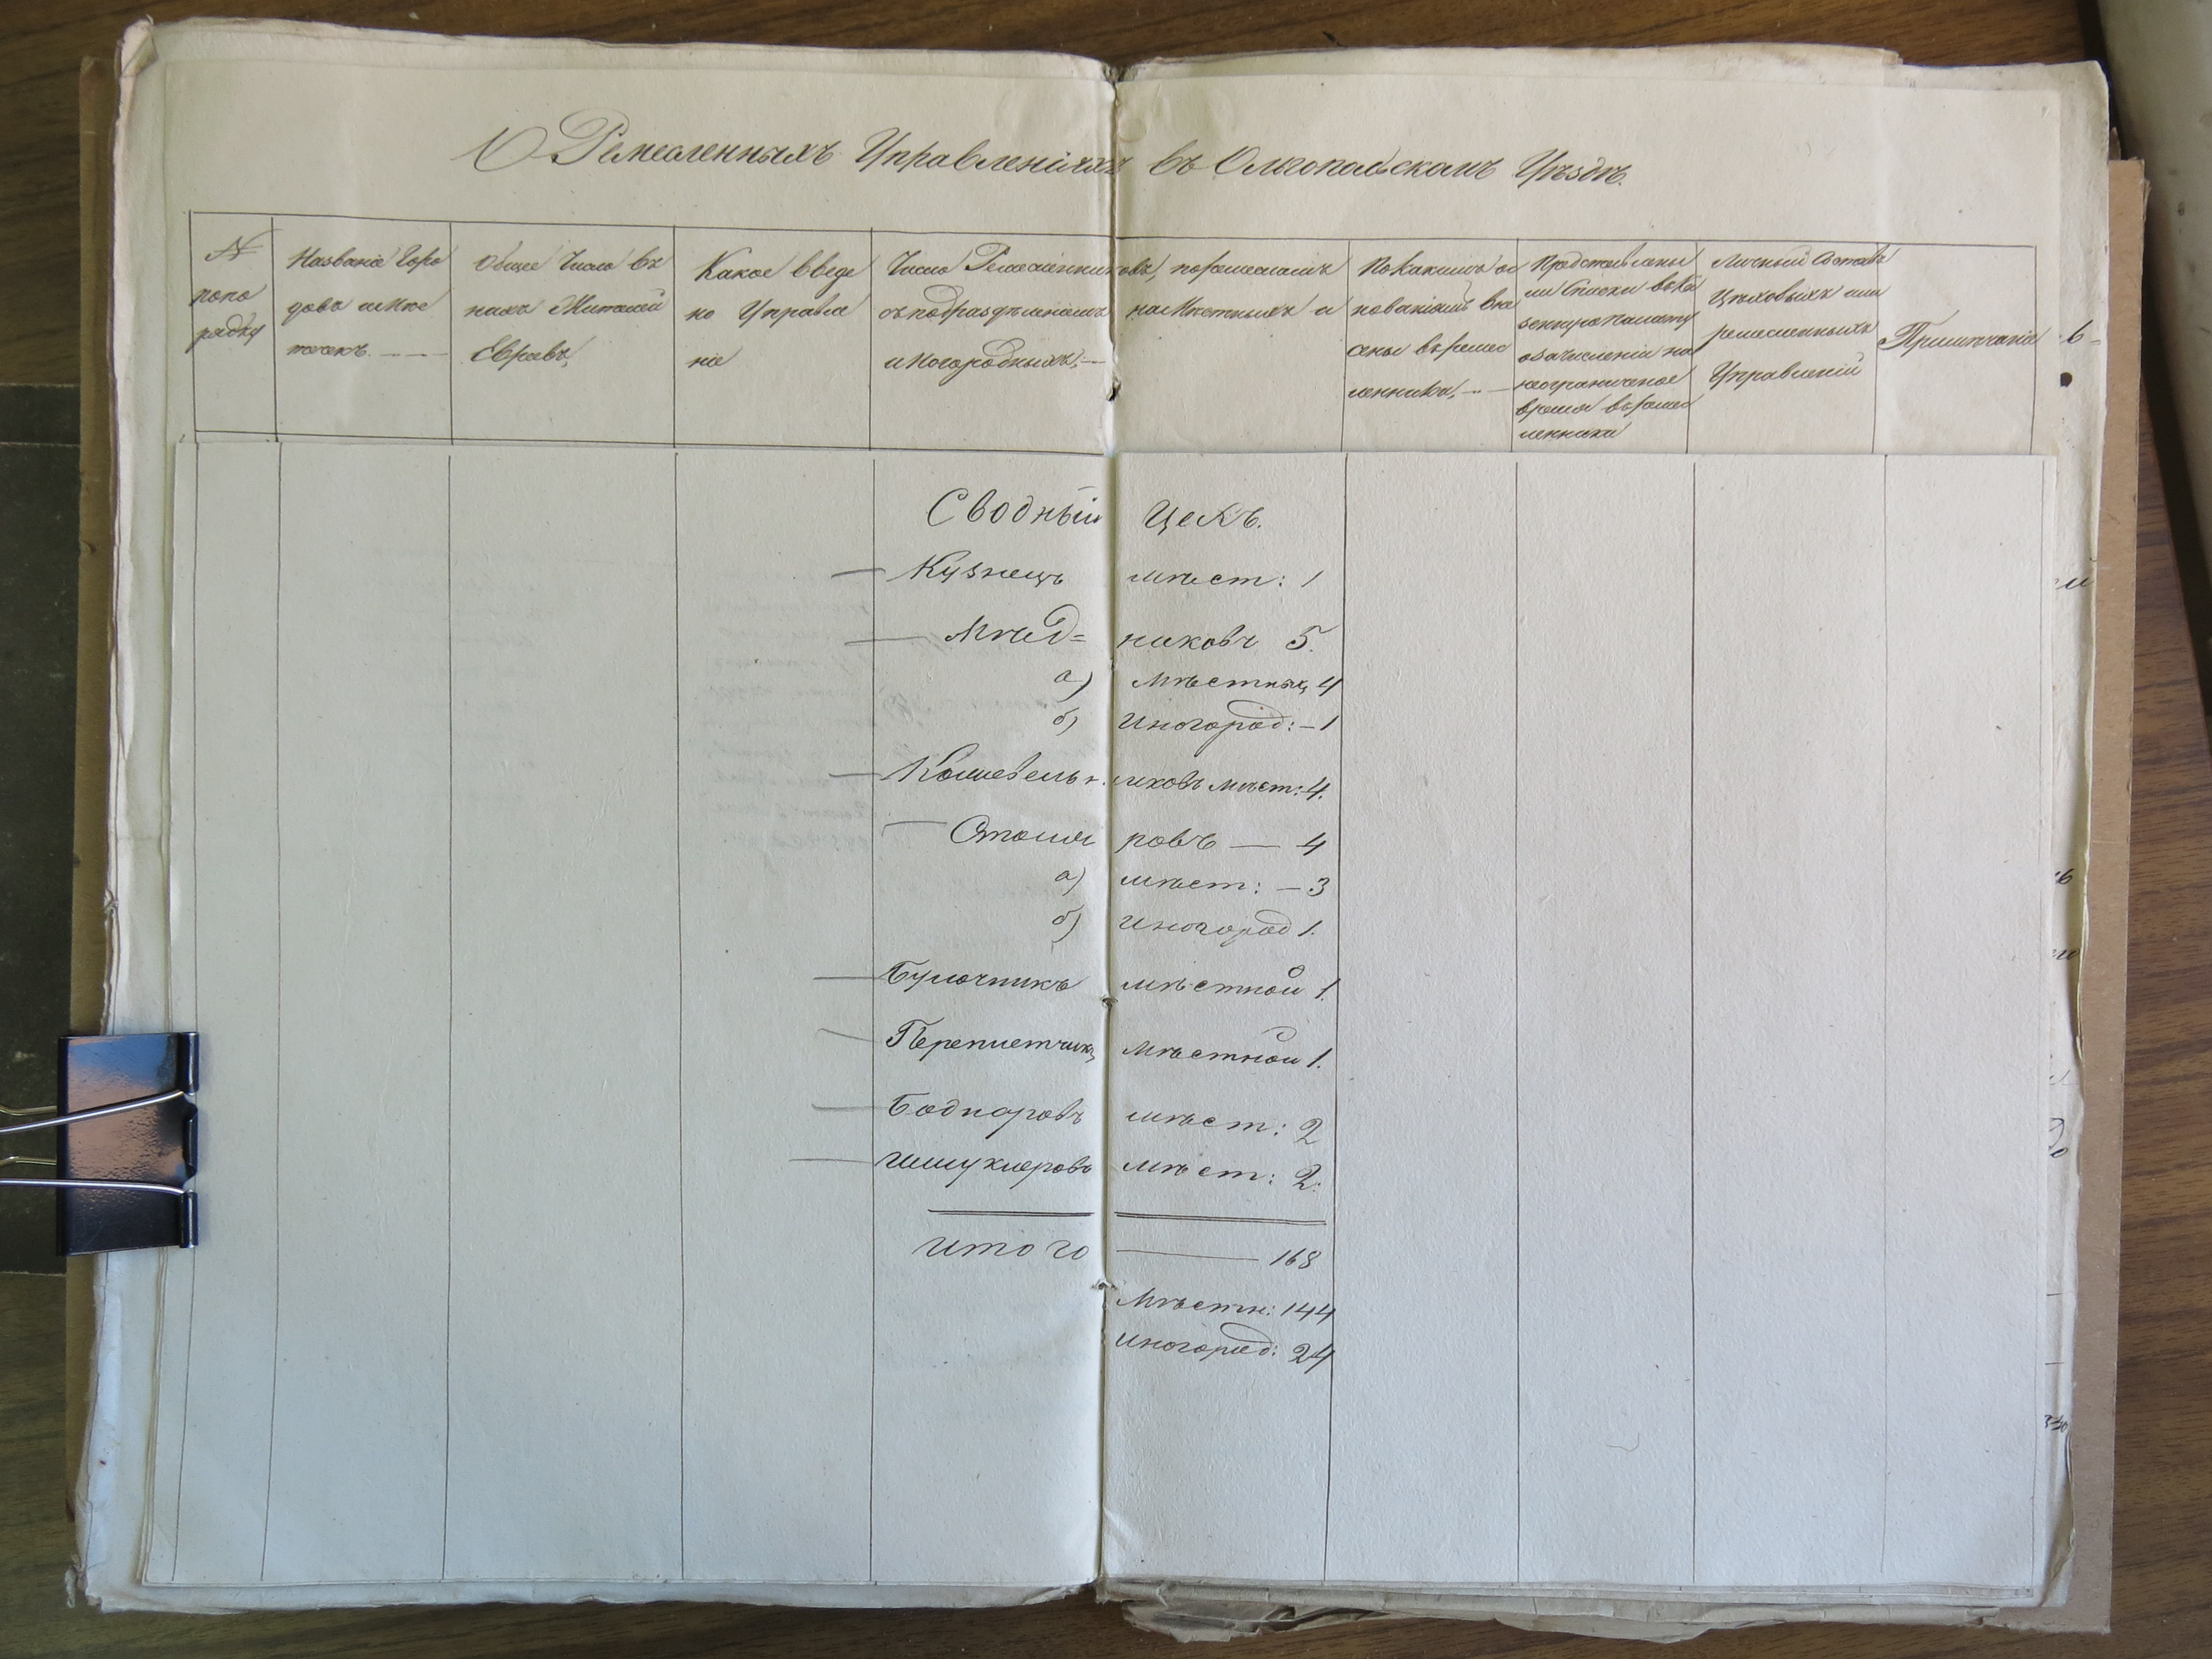 О Ремесленныхъ Управленіяхъ въ Ольгопольскомъ Уѣздѣ.
№
попо
рядку
Названіе Горо
довъ и мѣс
течекъ.
Общее Число въ
нихъ Жителей
Евреевъ,
Какое введе
но Управле
ніе
Число Ремесленниковъ, по ремесламъ
съ подраздѣленіемъ на Мѣстныхъ и
иногородныхъ,
По какимъ ос
нованіямъ вне
сены въ ремес
ленники,
Представлены
ли Списки въ Ка
зенную Палату
о зачисленіи на
неограниченое
время въ ремес
ленники
Личный Составъ
Цѣховыхъ или
ремесленныхъ
Управленій
Примѣчаніе
Сводный Цехъ.
Кузнецъ мѣст: 1
Мѣд= никовъ 5.
а) Мѣстных 4
б) Иногород: – 1
Кошевельн. иковъ мѣст: 4.
Столя ровъ — 4
а) мѣст: — 3
б) Иногород 1.
Булочникъ мѣстной 1.
Переплетчикъ Мѣстной 1.
Боднаровъ мѣст: 2
Шмуклеровъ мѣст: 2:
Итого — 168
Мѣстн: 144
Иногород: 24